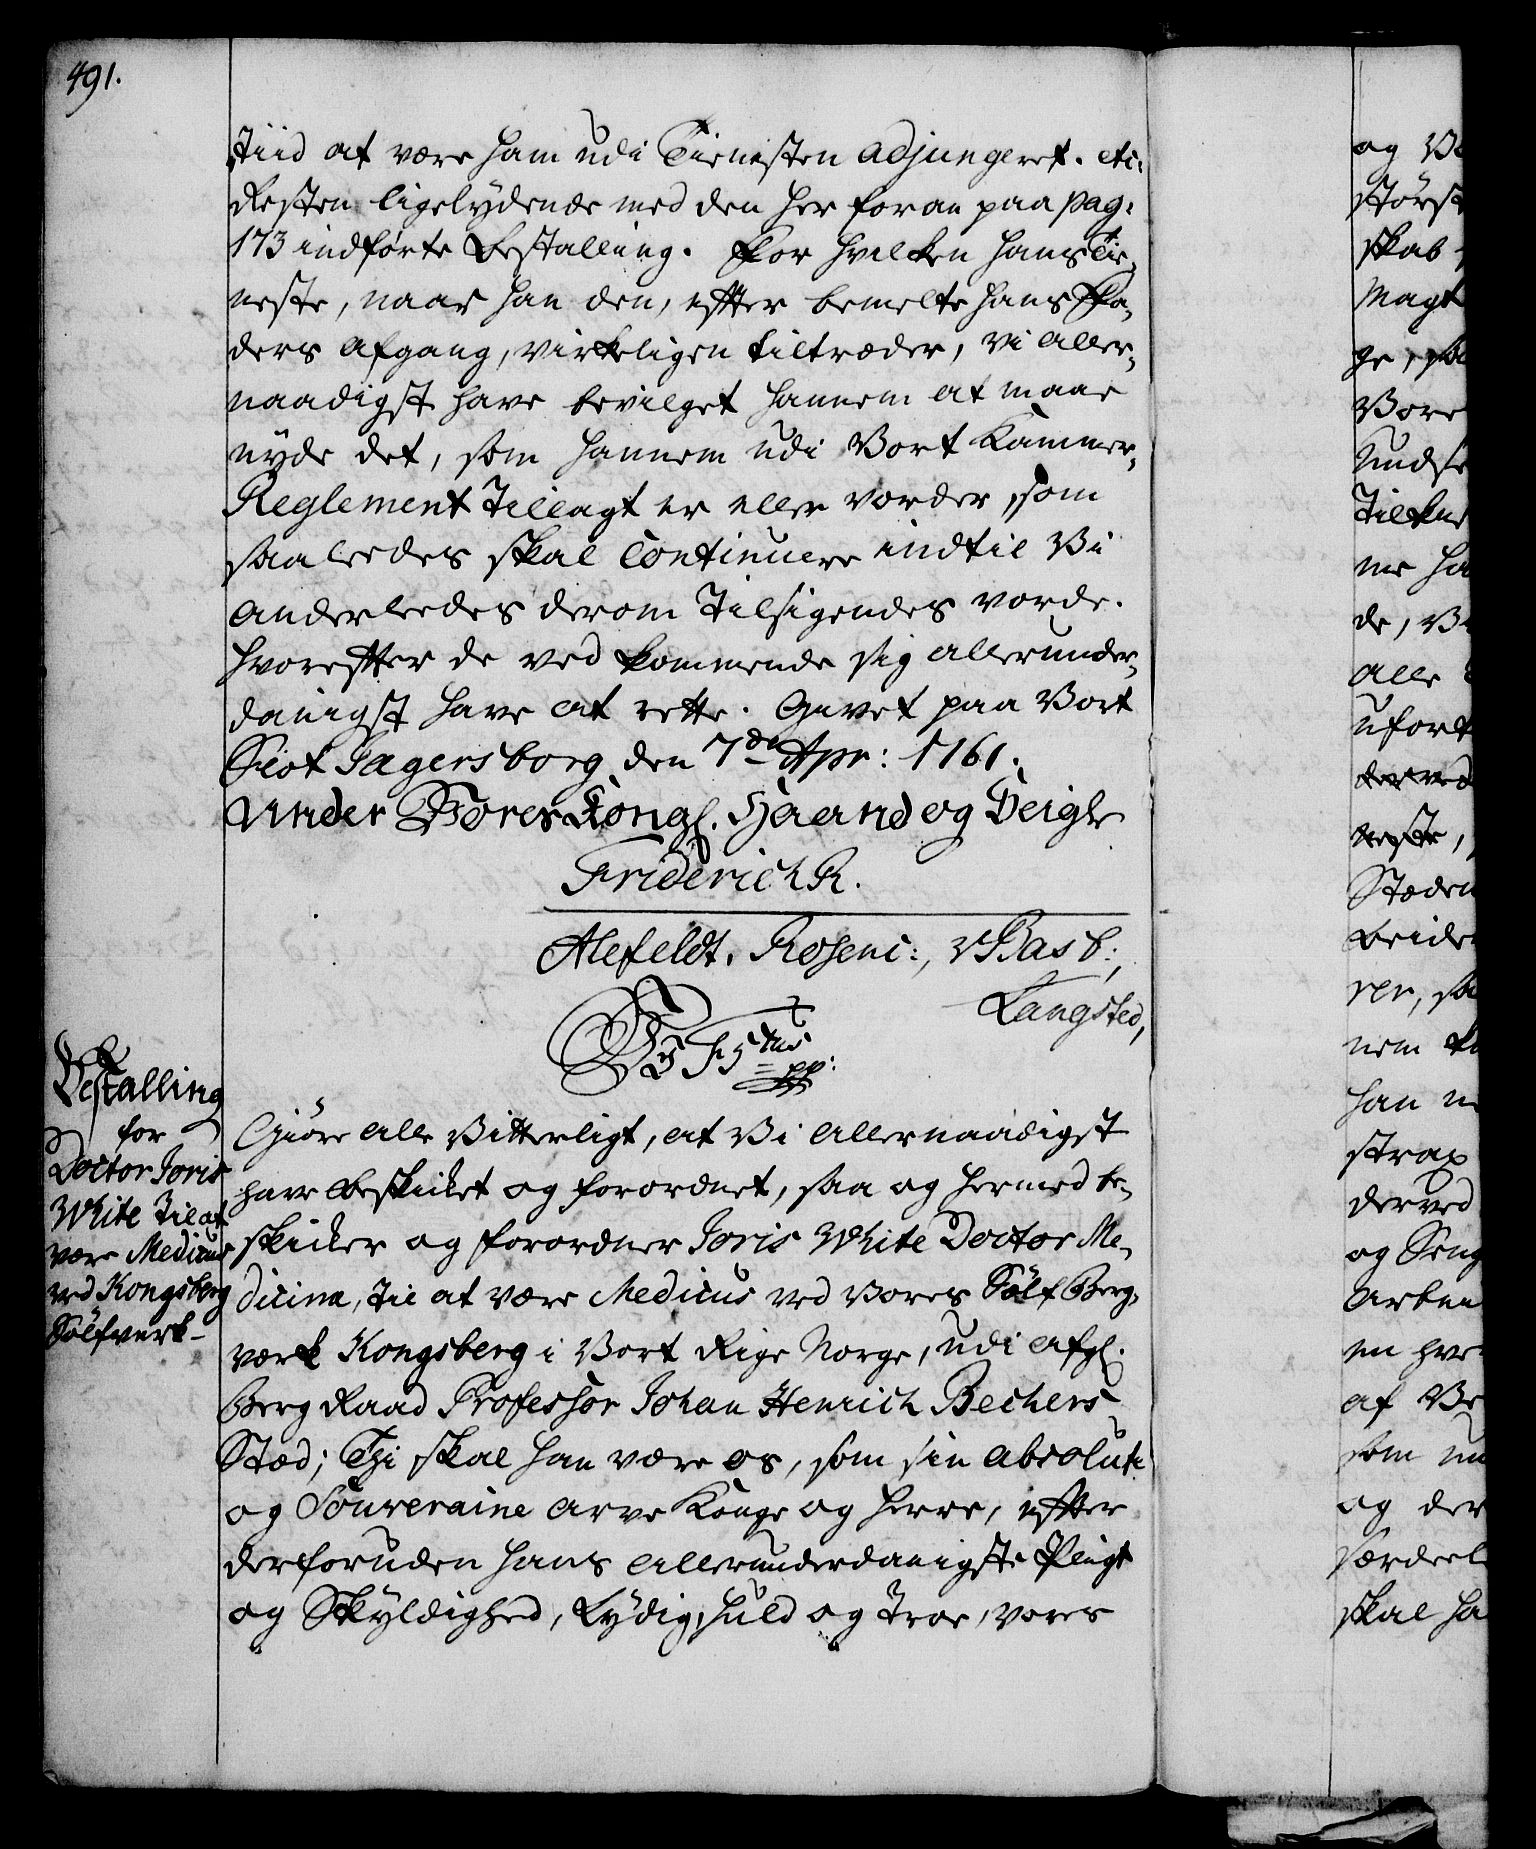 491.
Tiid at være ham udi Tienesten adjungeret. etc:
Resten ligelydende med den her foran paa pag:
173 indførte Bestalling. For hvilken hans Tie-
neste, naar han den, efter bemelte hans Fa-
ders Afgang, virkeligen tiltræder, vi aller-
naadigst have bevilget hannem at maae
nyde det, som hannem udi Vort Kammer-
Reglement Tillagt er eller vorder, som
saaledes skal Continuere indtil Vi
anderledes derom Tilsigendes vorde.
Hvorefter de ved kommende sig allerunder-
danigst have at rette. Givet paa Vort
Slot Jagersborg den 7de Apr: 1761.
Under Vores Kongl. Haand og Seigl
Friderich R.
Alefeldt. Rosenc:, Basb:,
Langsted,
Bestalling
for
Doctor Joris
White Til at
være Medicus
ved Kongsberg
Sølfverk-
Vi F 5tus
pp:
Giøre alle Vitterligt, at Vi allernaadigst
have beskicket og forordnet, saa og hermed be-
skicker og forordner Joris White Doctor Me-
dicinæ, til at være Medicus ved Vores Sølf Berg-
værk Kongsberg i Vort Rige Norge, udi afgl.
Berg Raad Professor Johan Henrich Bechers
Stæd; Thi skal han være os, som sin absolute
og Souveraine Arve Konge og Herre, efter
derforuden hans allerunderdanigste Pligt
og Skyldighed, Lydig, huld og Troe, vores
og
størst
skab
Magt
ge, saa
Vore
Tilkne
me ha
de,
alle
ufort
neste,
Stæden
beider
rer, sa
nem
han
strax
derved
og Seng
Arbei
en hver
af
som
og der
særdeel
skal ha